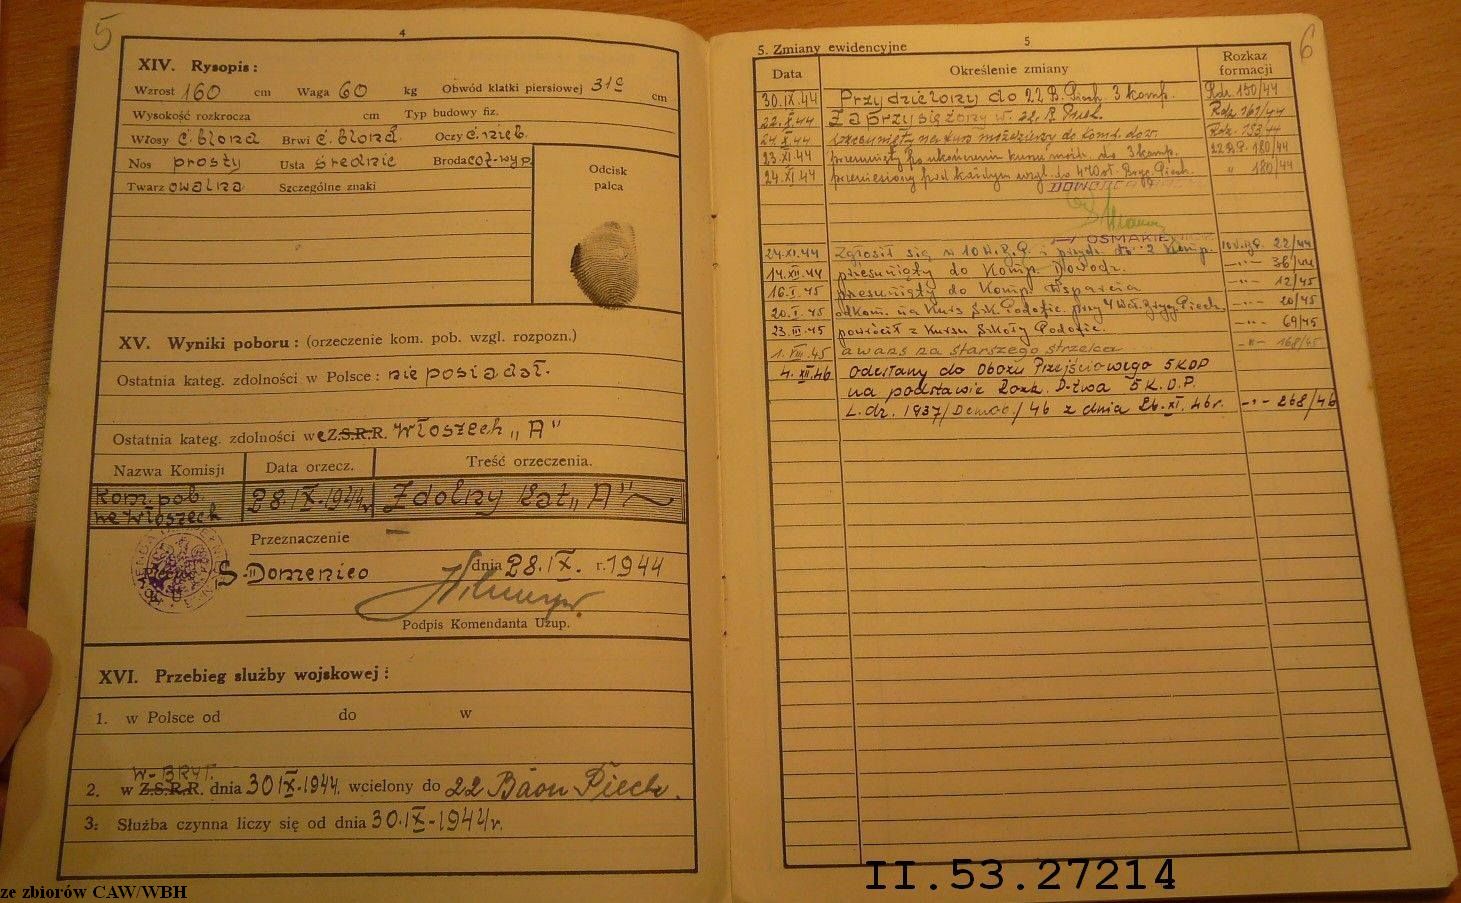 5
4
XIV. Rysopis :
Wzrost 160 cm Waga 60 kg Obwód klatki piersiowej cm
Wysokość rozkrocza cm Typ budowy fiz.
Włosy c. blond Brwi c. blond. Oczy c. nieb.
Nos prosty Usta średnie Broda
Twarz owalna Szczególne znaki
Odcisk
palca
XV. Wyniki poboru : (orzeczenie kom. pob. wzgl. rozpozn.)
Ostatnia kateg. zdolności w Polsce : nie posiadał.
Ostatnia kateg. zdolności we Z.S.R.R. Włoszech „A"
Nazwa Komisji Data orzecz. Treść orzeczenia.
Kom. pob.
we Włoszech 28.IX.1944r. Zdolny kat „A"
Przeznaczenie —
S. Domenico dnia 28.IX. r. 1944
Podpis Komendanta Uzup.
XVI. Przebieg służby wojskowej :
1. w Polsce od do w
W-BRYT.
2. w Z.S.R.R. dnia 30 IX-1944. wcielony do 22 Baon Piech.
3. Służba czynna liczy się od dnia 30.IX-1944r.
6
5
5. Zmiany ewidencyjne
Data Określenie zmiany Rozkaz formacji
30.IX.44 Przydzielony do 22 B. Piech. 3 komp. Rdz. 150/44
22.X.44 Zaprzysiężony w 22. B. Piech.
24.X.44 na kurs moździerzy do komp. dow.
23.XI.44 przesunięty po ukończeniu kursu moźdz. do 3 komp. 22 B.P. 180/44
24.XI.44 przeniesiony pod każdym wzgl. do 4 Woł. Bryg. Piech. " 180/44
24.XI.44 Zgłosił się w 10 W.B.P. i przydz. do 2 Komp. 10 W.B.P. 22/44
14.XII.44 przesunięty do Komp. Dowodz. -"- 36/44
16.I.45 przesunięty do Komp. Wsparcia -"- 12/45
20.I.45 odkom. na Kurs Szk. Podofic. przy 4 Woł. Bryg. Piech. -"- 20/45
23.III.45 powrócił z Kursu Szkoły Podofic. -"- 69/45
1.VIII.45 awans na starszego strzelca -"- 168/45
4.XII.46 Odesłany do Obozu Przejściowego 5 KDP
na podstawie Rozk. D-twa 5 K.D.P.
L.dz. 1937/Demob./46 z dnia 26.XI.46r. -"- 268/46
II.53.27214
ze zbiorów CAW/WBH